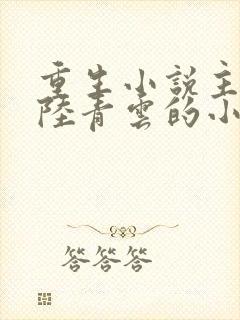 重生小说主
陸青雲的小
答答答